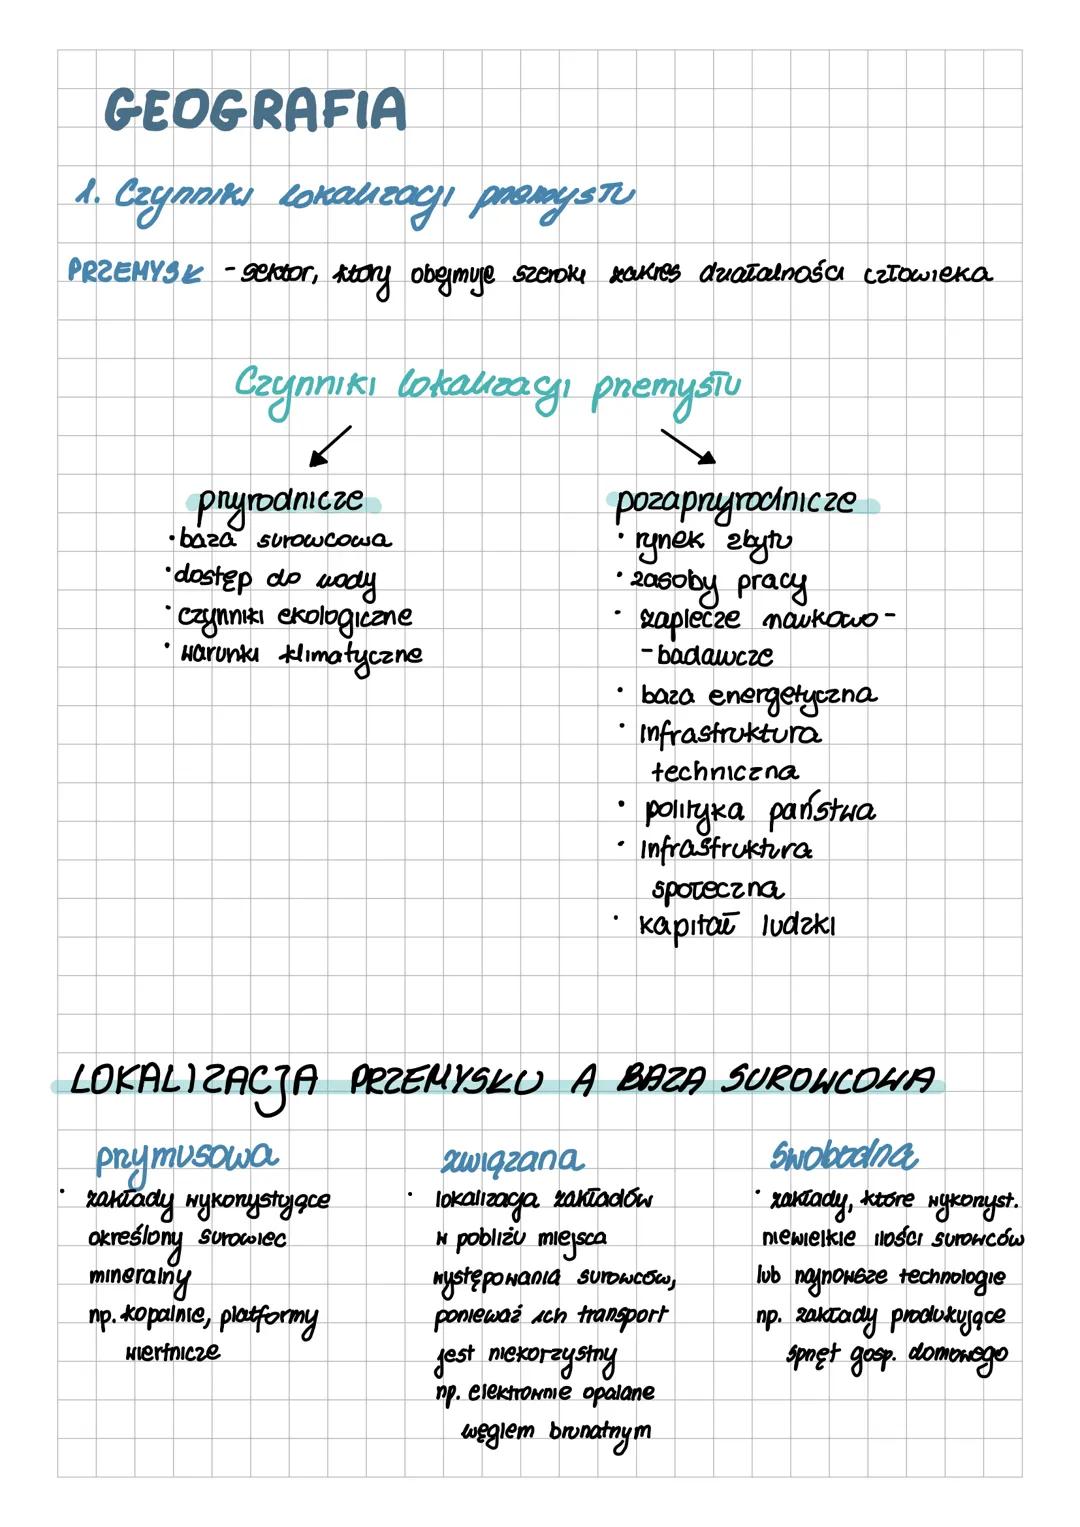 GEOGRAFIA
1. Czynniki lokalizacji przemysłu
PRZEMYSŁ - sektor, który obejmuje szeroki zakres działalności człowieka
Czynniki lokalizacji przemysłu
przyrodnicze
• baza surowcowa
• dostęp do wody
• czynniki ekologiczne
• warunki klimatyczne
pozaprzyrodnicze
• rynek zbytu
• zasoby pracy
• zaplecze naukowo-
-badawcze
• baza energetyczna
• infrastruktura
techniczna
• polityka państwa
• infrastruktura
społeczna
• kapitał ludzki
LOKALIZACJA PRZEMYSŁU A BAZA SUROWCOWA
przymusowa
• zakłady wykorzystujące
określony surowiec
mineralny
np. kopalnie, platformy
wiertnicze
związana
• lokalizacja zakładów
w pobliżu miejsca
występowania surowców,
ponieważ ich transport
jest niekorzystny
np. elektrownie opalane
węglem brunatnym
swobodna
• zakłady, które wykorzyst.
niewielkie ilości surowców
lub najnowsze technologie
np. zakłady produkujące
sprzęt gosp. domowego